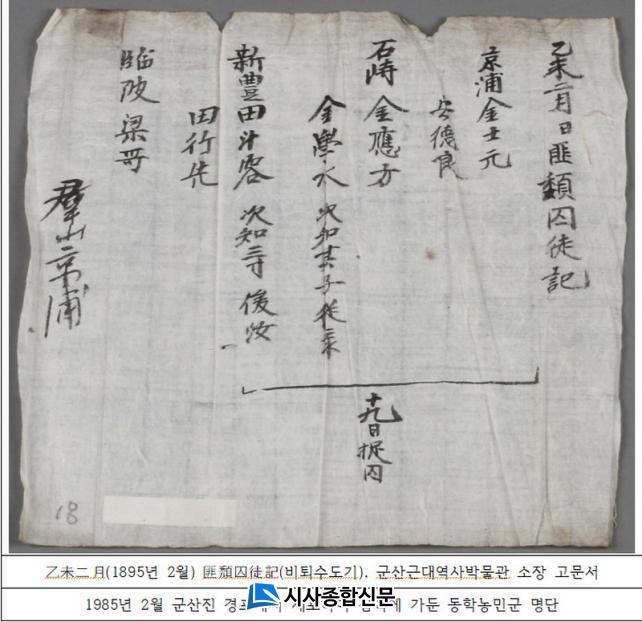 乙未二月日匪類囚徒記
京浦金士元
安德良
石峙 金應方
金學水 次知其子
新豊田斗容 次知 後汝
田行先
臨陂梁哥
羣山京浦
十九日捉囚
18
乙未二月(1895년 2월) 匪頹囚徒記(비퇴수도기), 군산근대역사박물관 소장 고문서
1985년 2월 군산진 가둔 동학농민군 명단
시사종합신문